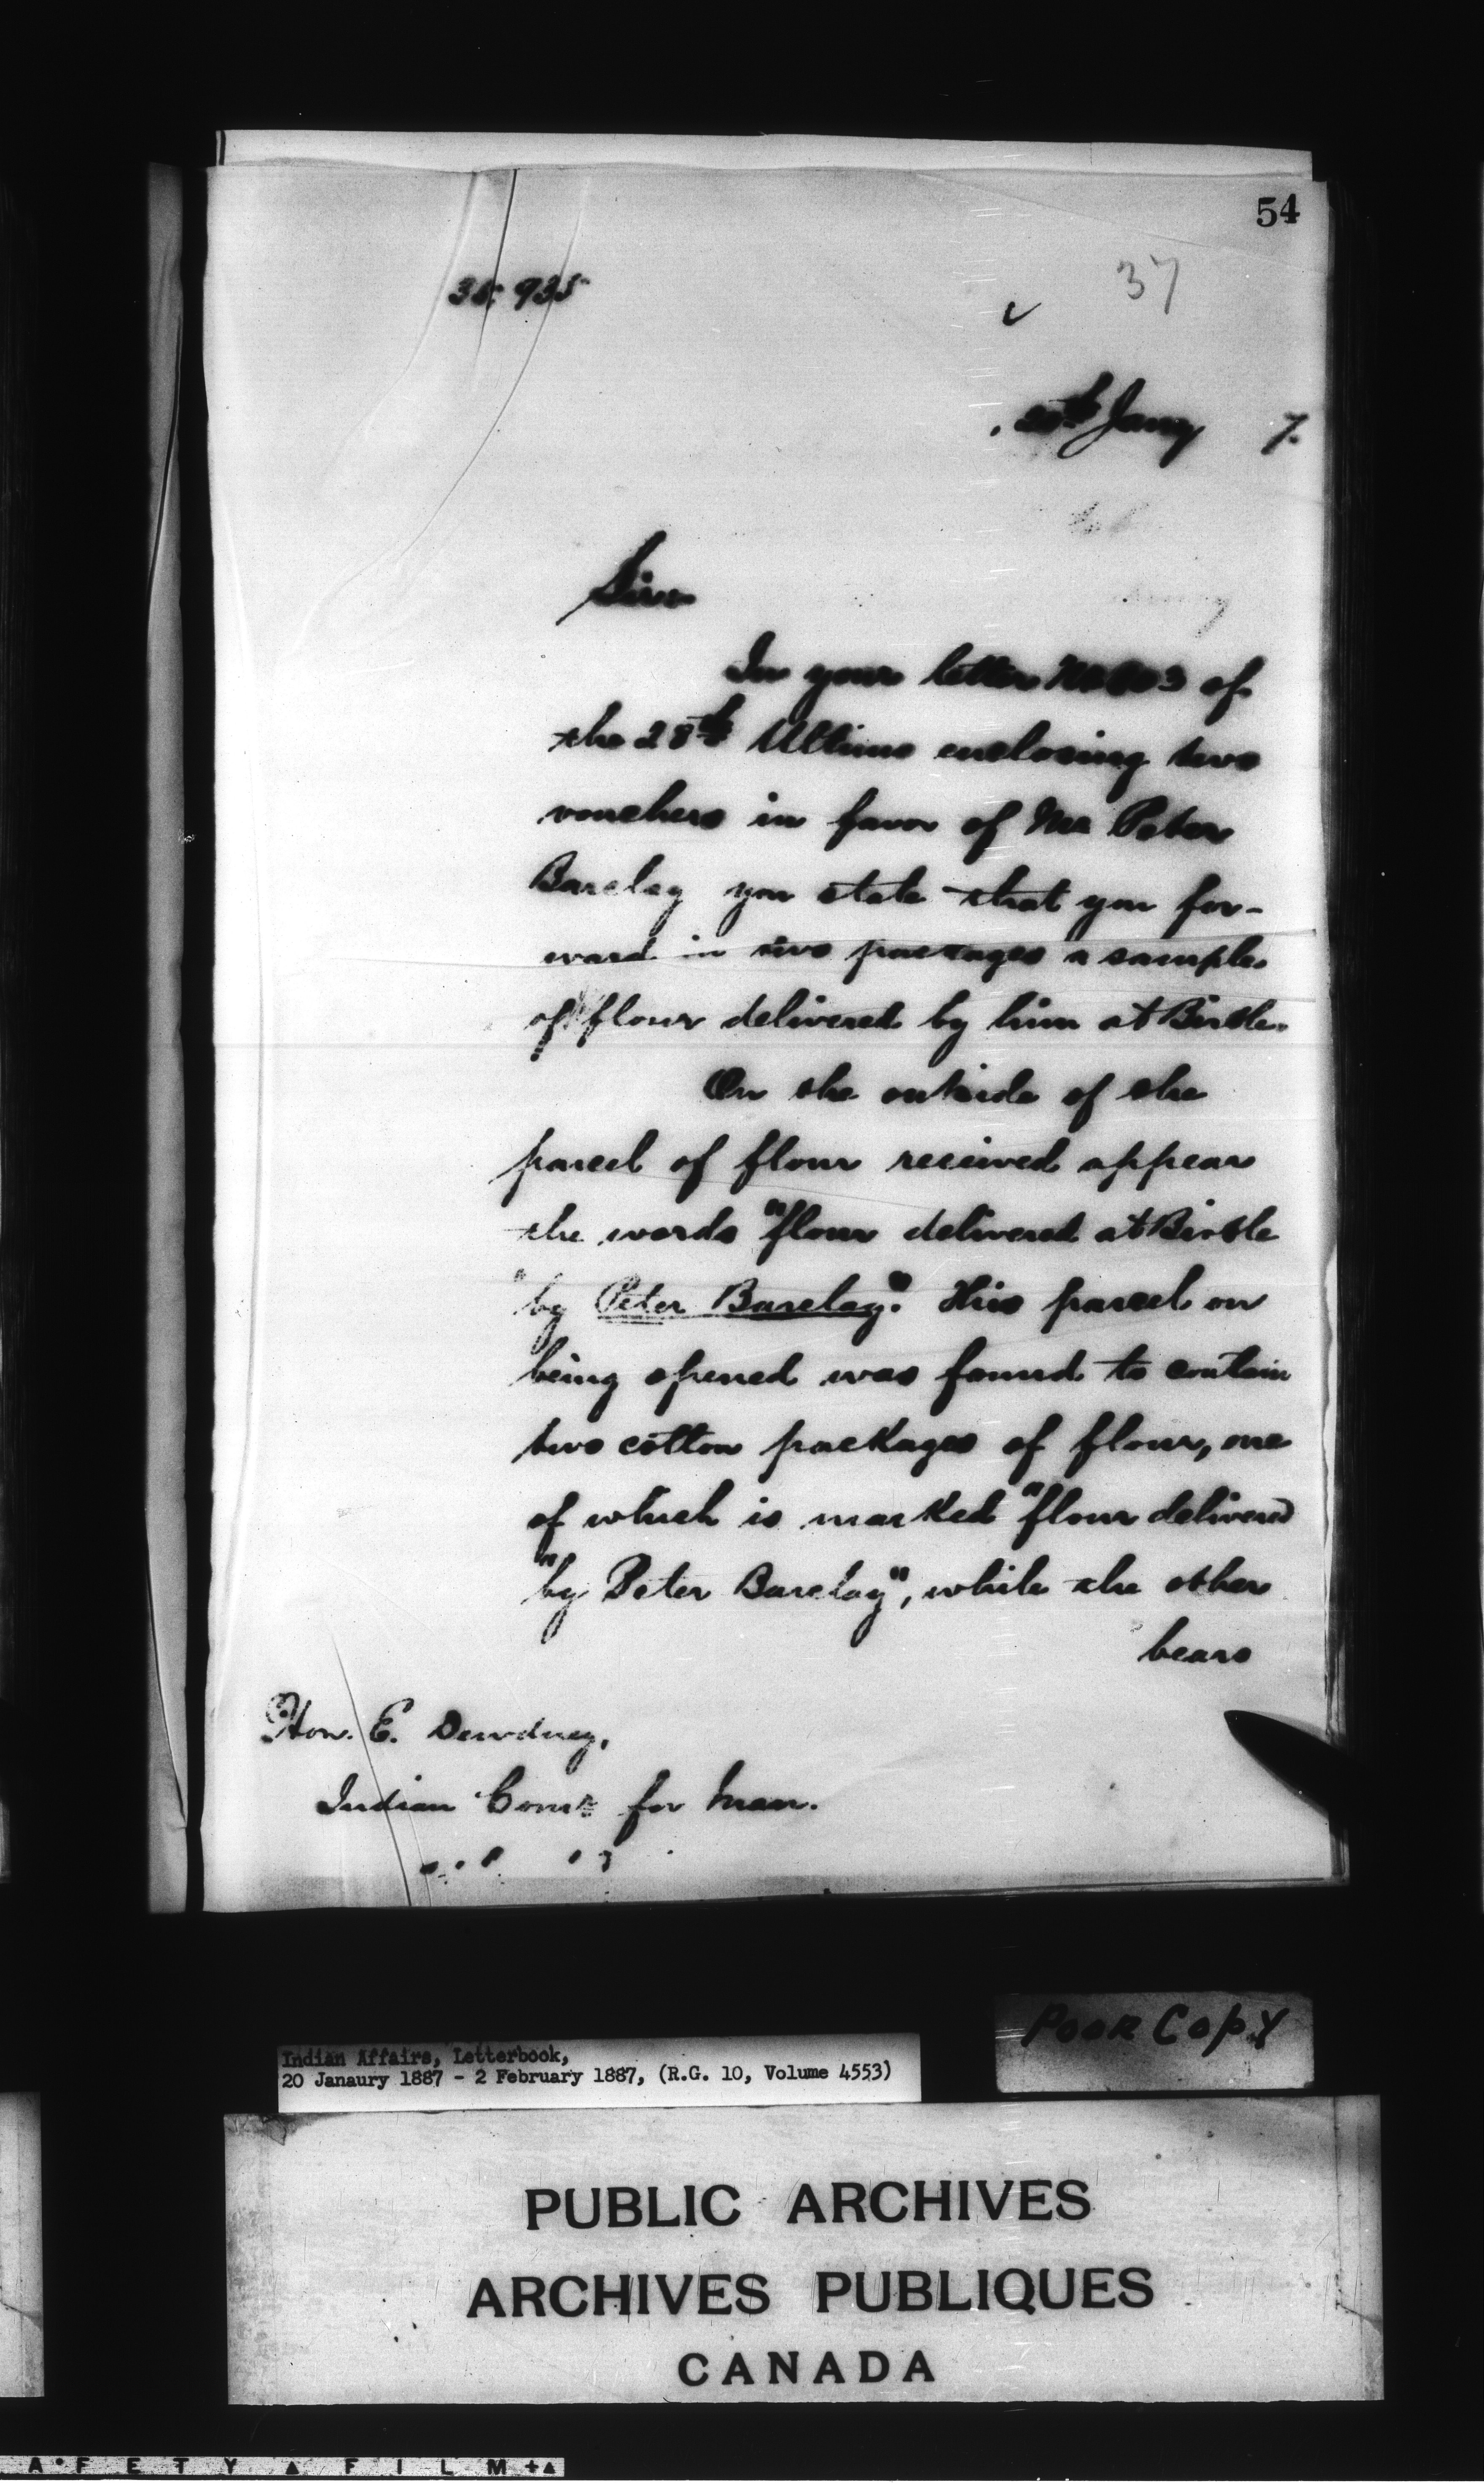 54
37
35 935
20th Jany 7.
Sir
In your letter No 3 of
the 28th Ultimo enclosing two
vouchers in favor of Mr Peter
Barclay you state that you for-
ward in two packages a sample
of flour delivered by him at Birtle.
On the outside of the
parcel of flour received appear
the words "flour delivered at Birtle
"by Peter Barclay". This parcel on
being opened was found to contain
two cotton packages of flour, one
of which is marked "flour delivered
"by Peter Barclay", while the other
bears
Hon. E. Dewdney,
Indian Comr for Man.
Poor Copy
Indian Affairs, Letterbook,
20 Janaury 1887 - 2 February 1887, (R.G. 10, Volume 4553)
PUBLIC ARCHIVES
ARCHIVES PUBLIQUES
CANADA
A F E T Y ▲ F I L M +▲